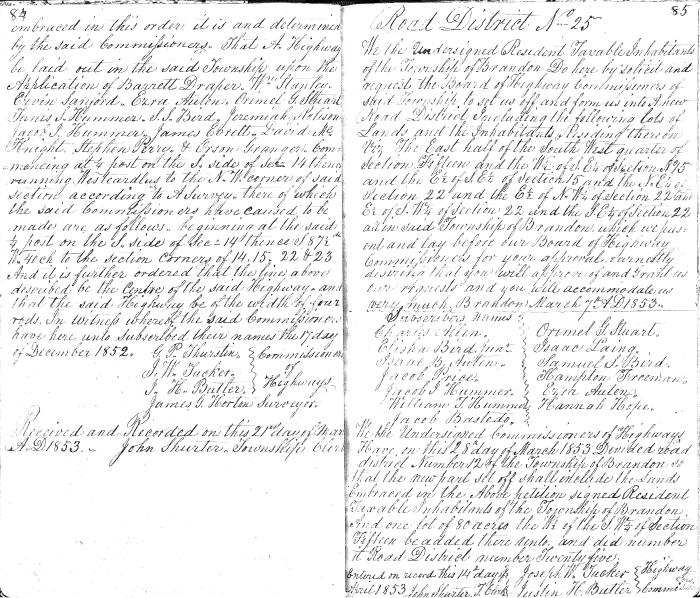 84
embraced in this order, it is and determined
by the said Commissioners. That A Highway
be laid out in the said Township upon the
Application of Barrett Draper. Wm Stanley.
Ervin Sanford. Ezra Auten. Ormel G. Stuart
Tunis S. Hummer. S. S. Bird. Jeremiah
Jacob S. Hummer. James Ebrett. David Mc
Knight. Stephen Perry. & Tyson Granger. Com-
mencing at ¼ post on the S. side of Sec 14 thence
running Westeardlus to the N.W. corner of said
section according to A Survey there of which
the said Commissioners have caused to be
made are as follows. beginning at the said
¼ post on the S. side of Sec 14 thence S 87½
W. 40 ch to the section Corners of 14. 15. 22 & 23
And it is further ordered that the line above
described be the Centre of the said Highway and
that the said Highway be of the width of four
rods. In witness whereof the said Commissioners
have here unto Subscribed their names the 17 day
of December 1852.
G. P. Thurstin
J. W. Tucker
J. H. Butler
Commissioners
of
Highways
James G. Horton Surveyor.
Received and Recorded on this 21st day of Mar
A D 1853. John Shurter Township Clerk
85
Road District No 25
We the undersigned Resident Taxable Inhabitants
of the Township of Brandon Do here by solicit and
request the Board of Highway Commissioners of
said Township to set us off and form us into A new
Road District Including the following lots of
Lands and the Inhabitants Residing thereon
Viz. The East half of the South West quarter of
Section Fifteen and the W½ of S. E¼ of Section No 15
and the E½ of S. E¼ of Section 15 and the N. E¼ of
Section 22 and the E½ of N. W¼ of Section 22 and
E½ of S. W¼ of Section 22 and the S. E¼ of Section 22
all in said Township of Brandon which we pres-
ent and lay before our Board of Highway
Commissioners for your approval, earnestly
desireing that you will approve of and Grant us
our requests and you will accommodate us
very much. Brandon March 7th A D 1853.
Subscribers names
Auten.
Elisha Bird junr
Isaac B. Auten.
Jacob Price.
Jacob S Hummer.
William T. Hummer
Jacob Bastedo.
Ormel G Stuart.
Isaac Laing.
Samuel S. Bird.
Hampton Freeman.
Ezra Auten.
Hannah Hope.
We the Undersigned Commissioners of Highways
Have on this 28 day of March 1853 Divided road
district Number 12 of the Township of Brandon so
that the new part set off shall include the Lands
Embraced in the Above petition signed Resident
Taxable Inhabitants of the Township of Brandon.
And one lot of 80 acres the W½ of the S. W¼ of Section
Fifteen be added there unto. and did number
it Road District number Twenty five.
Entered on record this 14th day of
April 1853 John Shurter T. Clerk
Joseph W. Tucker
Justin H. Butler
Highway